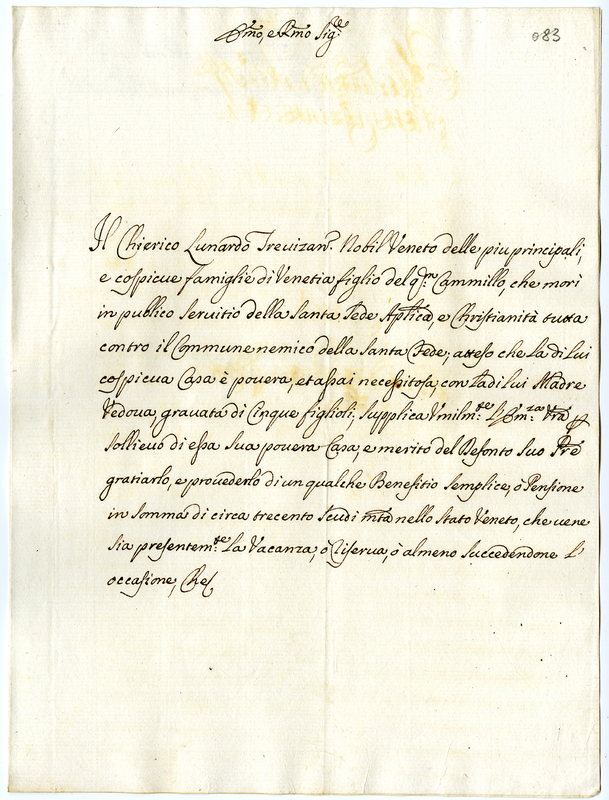 Em̃o, e Rm̃o Sig.re
083
Il Chierico Lunardo Trevizan. Nobil Veneto delle piu principali,
e cospicue famiglie di Venetia figlio del q.m Cammillo, che morì
in publico servitio della Santa Sede Aplica, e Christianità tutta
contro il Commune nemico della Santa Fede; atteso che la di lui
cospicua Casa è povera, et assai necessitosa, con la di lui Madre
Vedova, gravata di Cinque figlioli; supplica Vmilm.te l'Em.za Vra p
sollievo di essa sua povera Casa, e merito del Defonto suo Pre
gratiarlo, e provederlo di un qualche Benefitio semplice, ò Pensione
in somma di circa trecento scudi mta nello Stato Veneto, che vene
sia presentem.te la Vacanza, ò Riserva, ò almeno succedendone l'
occasione, Che